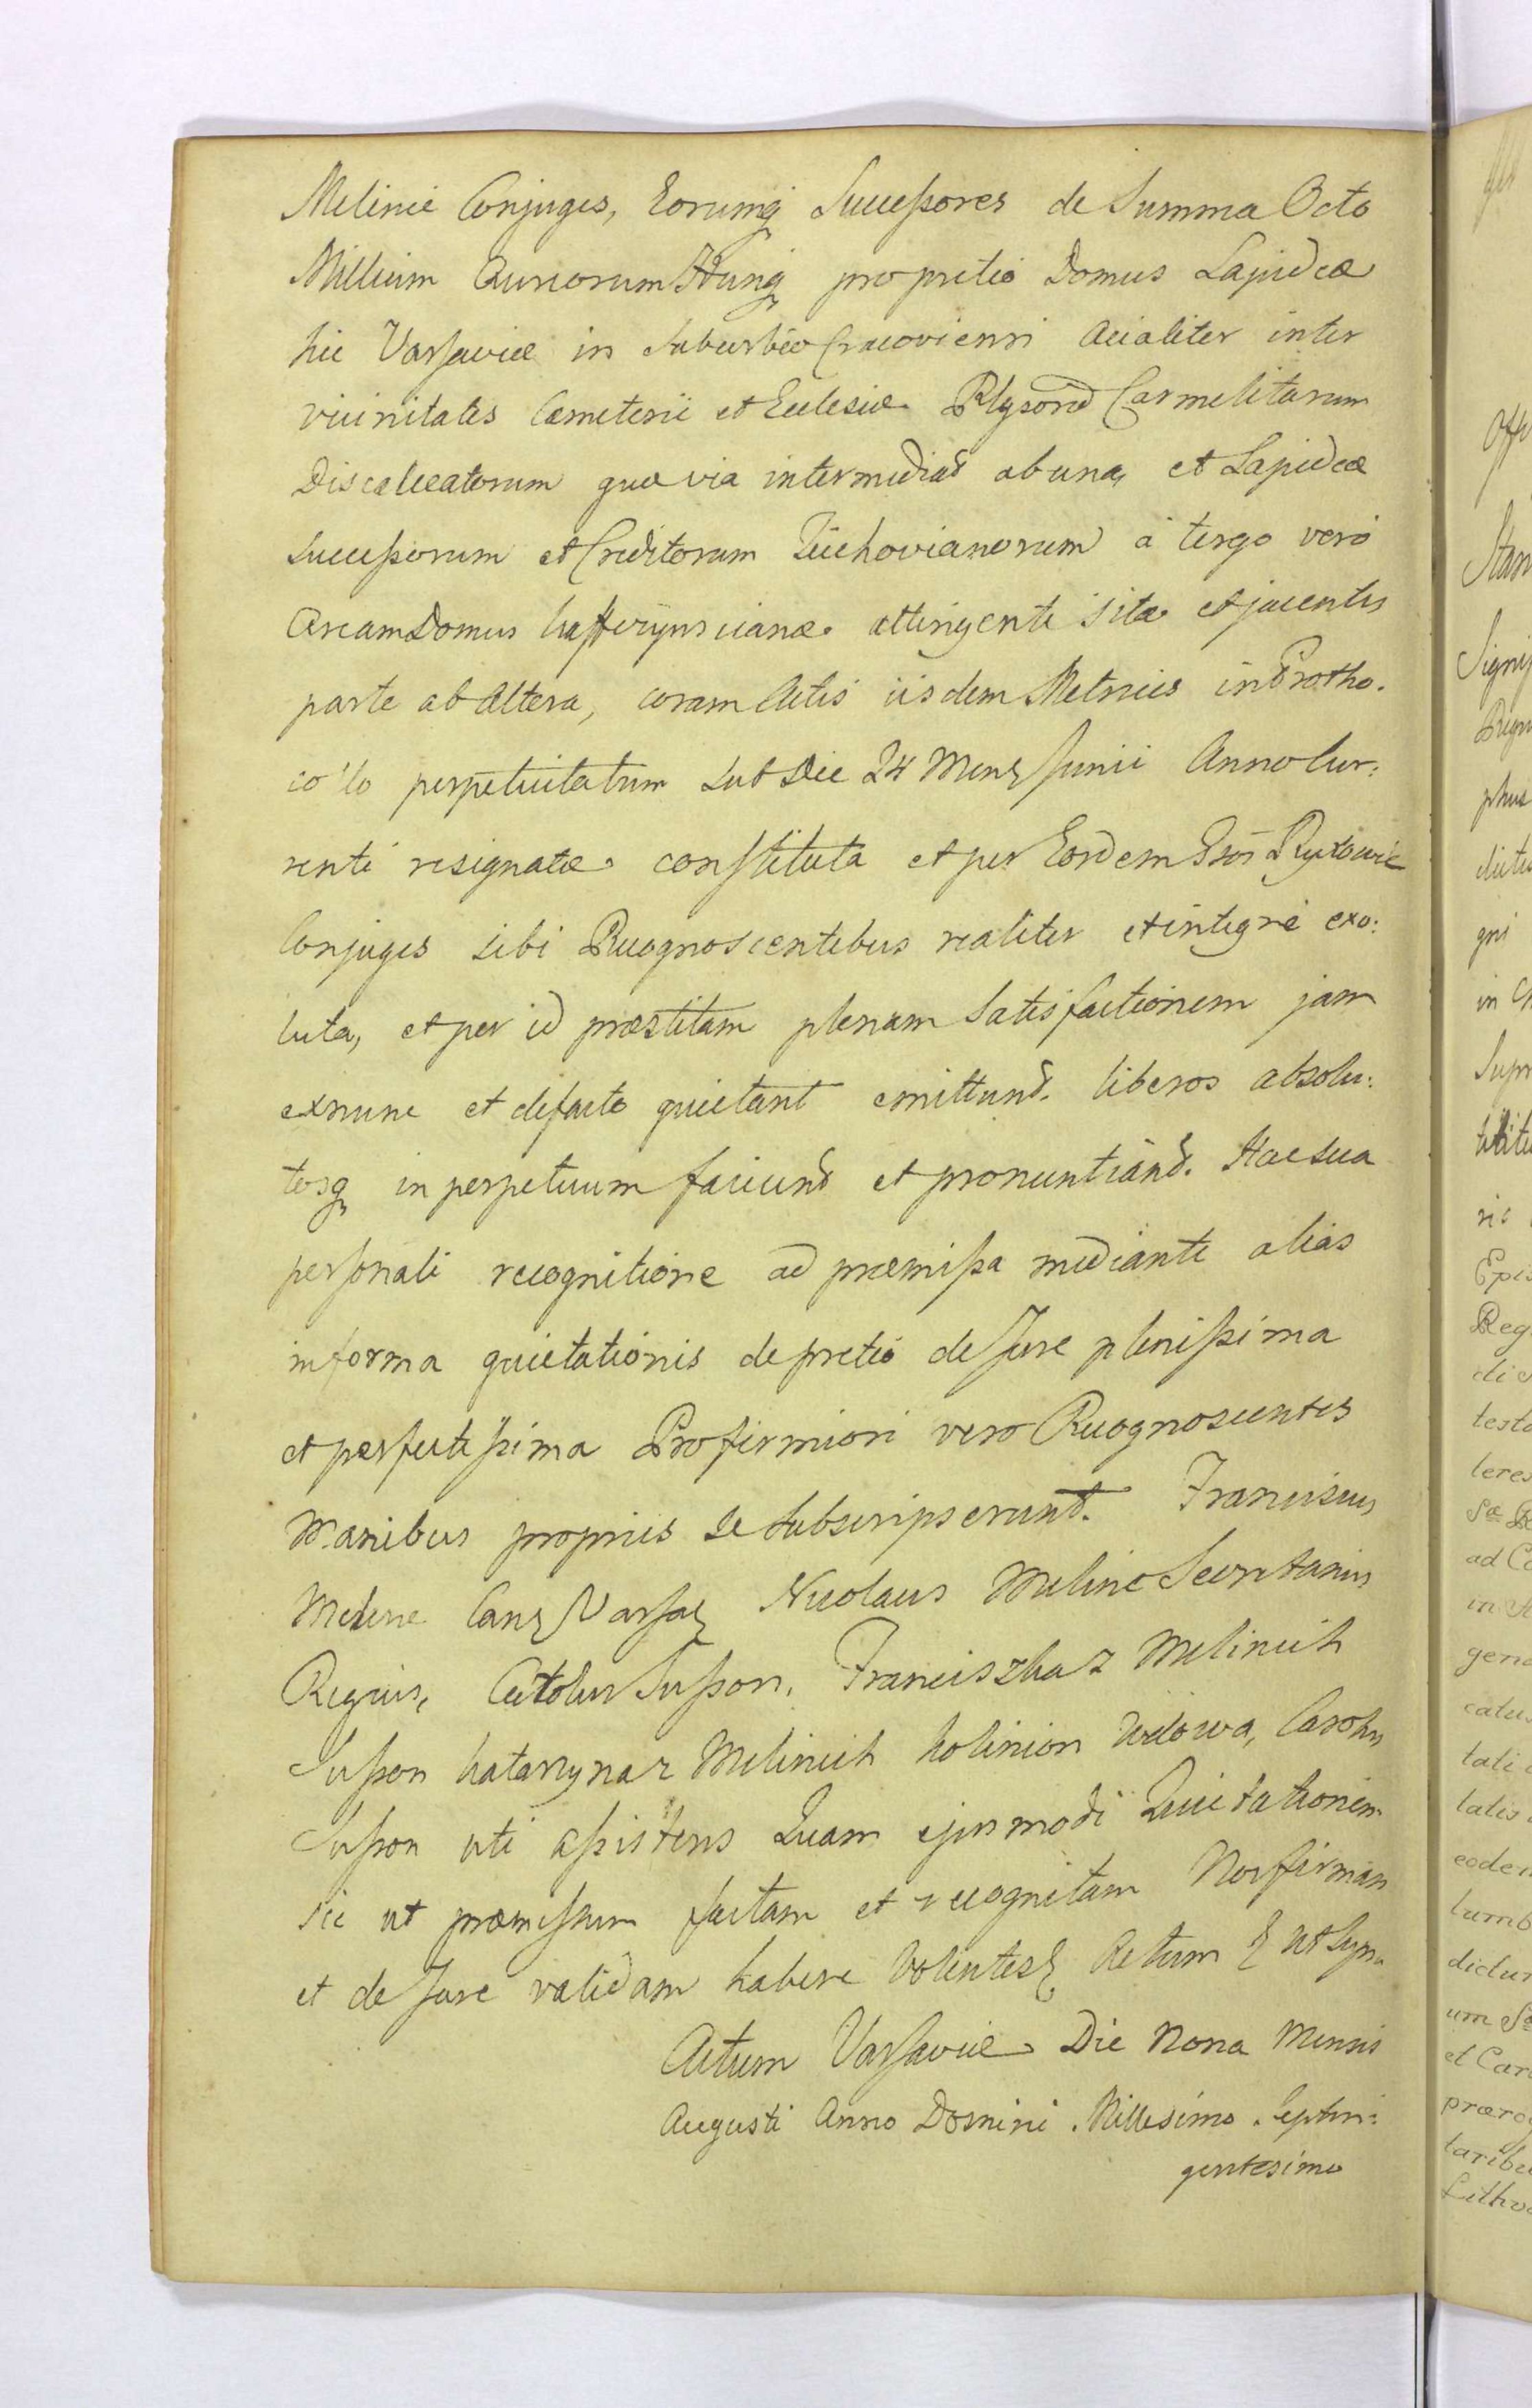 Melinie Conjuges, Eorumq Successores de Summa Octo
Millium Aureorum Hung pro pretio Domus Lapideæ
hic Varsaviæ in Suburbio Cracoviensi Acialiter inter
vicinitates Cæmeterii et Ecclesiæ Rlgsord Carmelitarum
Discalceatorum quæ via intermediat ab una, et Lapideæ
Successorum et Creditorum Zuchovianorum à tergo verò
Aream Domus attingente sitæ et jacentis
parte ab Altera, coram Actis iisdem Metrices in Protho.
collo perpetuitatum sub Die 24 Mens Junii Anno Cur:
renti resignatæ constituta et per Eosdem Gsos Ryxowie
Conjuges sibi Recognoscentibus realiter et integrè exo:
luta, et per id præstitam plenam Satisfactionem jam
exnunc et defacto quietant emittunt. liberos absolu:
tosq in perpetuum faciunt et pronuntiant. Hac sua
personali recognitione ad præmissa mediante alias
in forma quietationis de pretio de Jure plenissima
et perfectissima Pro firmiori vero Recognoscentes
Manibus propriis se subscripserunt. Franciscus
Meline Can Varsa Nicolaus Meline Secretarius
Regius, Susson, Franciszka z Melinich
Susson Katarzyna z Melinich Kolinion Wdowa, Carolus
Susson uti assistens Quam ejusmodi Quietationem
sic ut præmissum factam et recognitam Nos firmam
et de Jure validam habere Volentes Actum ut Supra
Actum Varsaviæ Die Nona Mensis
Augusti Anno Domini Millesimo Septin:
gentesimo